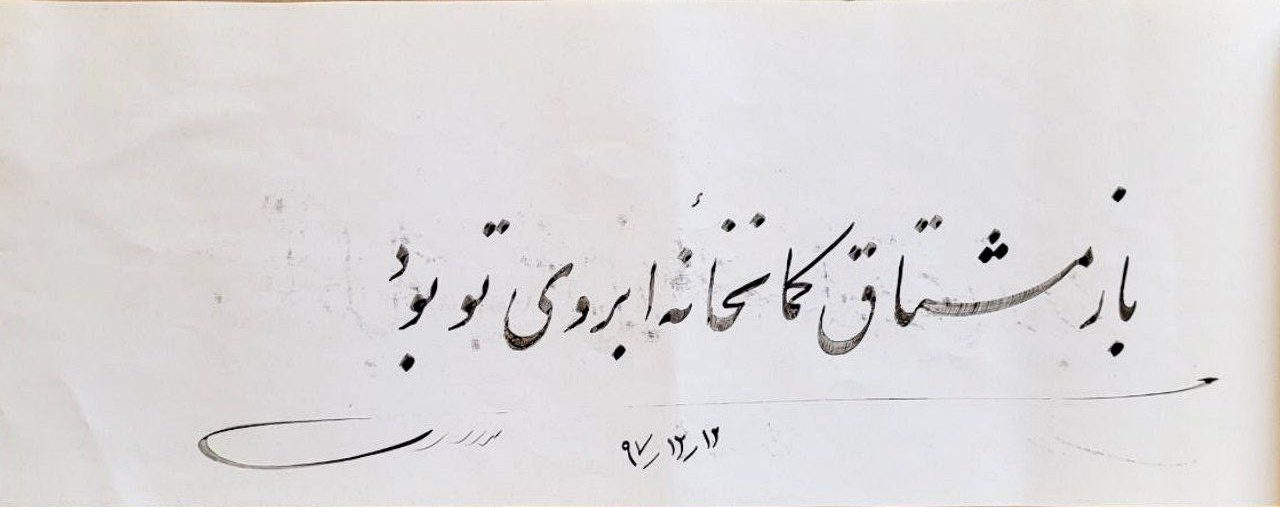 باز مشتاق کمانخانهٔ ابروی تو بود
۹۷٫۱۲٫۱۲